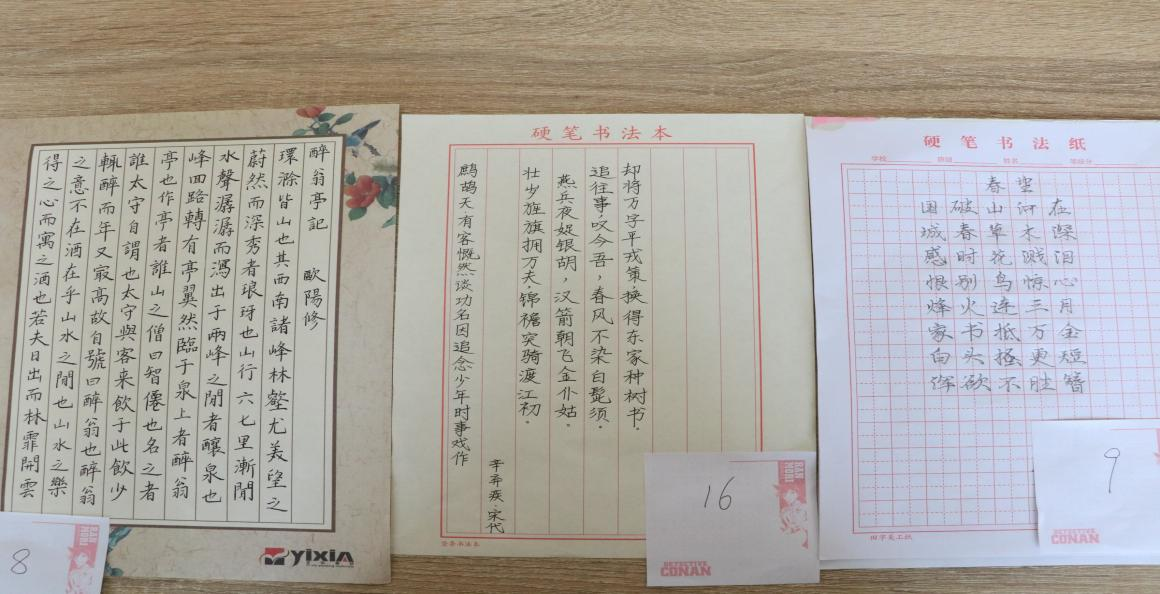 醉翁亭記 歐陽修
環滁皆山也其西南諸峰林壑尤美望之
蔚然而深秀者琅玡也山行六七里漸聞
水聲潺潺而瀉出于兩峰之間者釀泉也
峰回路轉有亭翼然臨于泉上者醉翁
亭也作亭者誰山之僧曰智僊也名之者
誰太守自謂也太守與客来飲于此飲少
輒醉而年又寂高故自號曰醉翁也醉翁
之意不在酒在乎山水之間也山水之樂
得之心而寓之酒也若夫日出而林霏開雲
YIXIA
8
RAN MORI
硬笔书法本
鹧鸪天有客慨然谈功名因追念少年时事戏作
辛弃疾·宋代
壮少旌旗拥万夫,锦襜突骑渡江初。
燕兵夜娖银胡,汉箭朝飞金仆姑。
追往事,叹今吾,春风不染白髭须。
却将万字平戎策换得东家种树书。
16
RAN MORI
DETECTIVE CONAN
硬笔书法纸
学校 班级 姓名 等级分
春望
国破山河在
城春草木深
感时花溅泪
恨别鸟惊心
烽火连三月
家书抵万金
白头搔更短
浑欲不胜簪
9
DETECTIVE CONAN